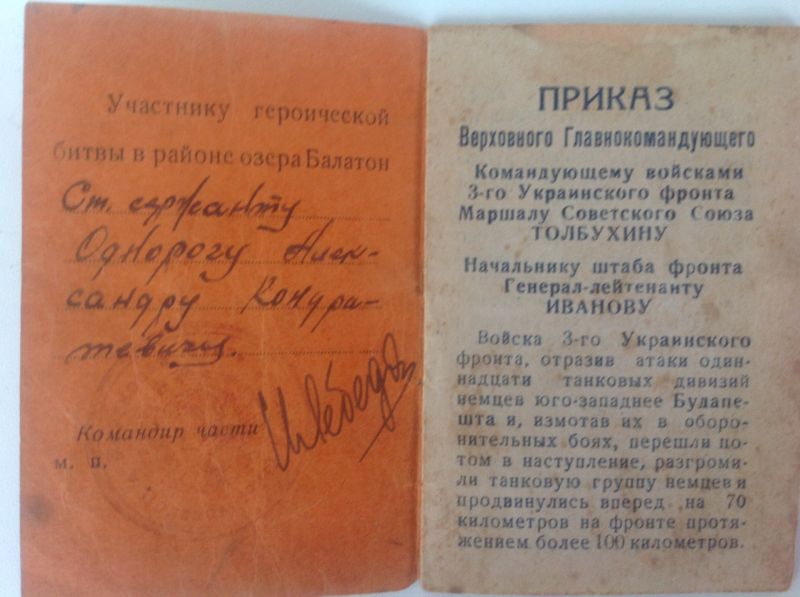 Участнику героической
битвы в районе озера Балатон
Ст. сержанту
Однорогу Алек-
сандру Кондра-
тевичу.
Командир части
м. п.
ПРИКАЗ
Верховного Главнокомандующего
Командующему войсками
3-го Украинского фронта
Маршалу Советского Союза
ТОЛБУХИНУ
Начальнику штаба фронта
Генерал-лейтенанту
ИВАНОВУ
Войска 3-го Украинского
фронта, отразив атаки один-
надцати танковых дивизий
немцев юго-западнее Будапе-
шта и, измотав их в оборо-
нительных боях, перешли по-
том в наступление, разгроми-
ли танковую группу немцев и
продвинулись вперед на 70
километров на фронте протя-
жением более 100 километров.